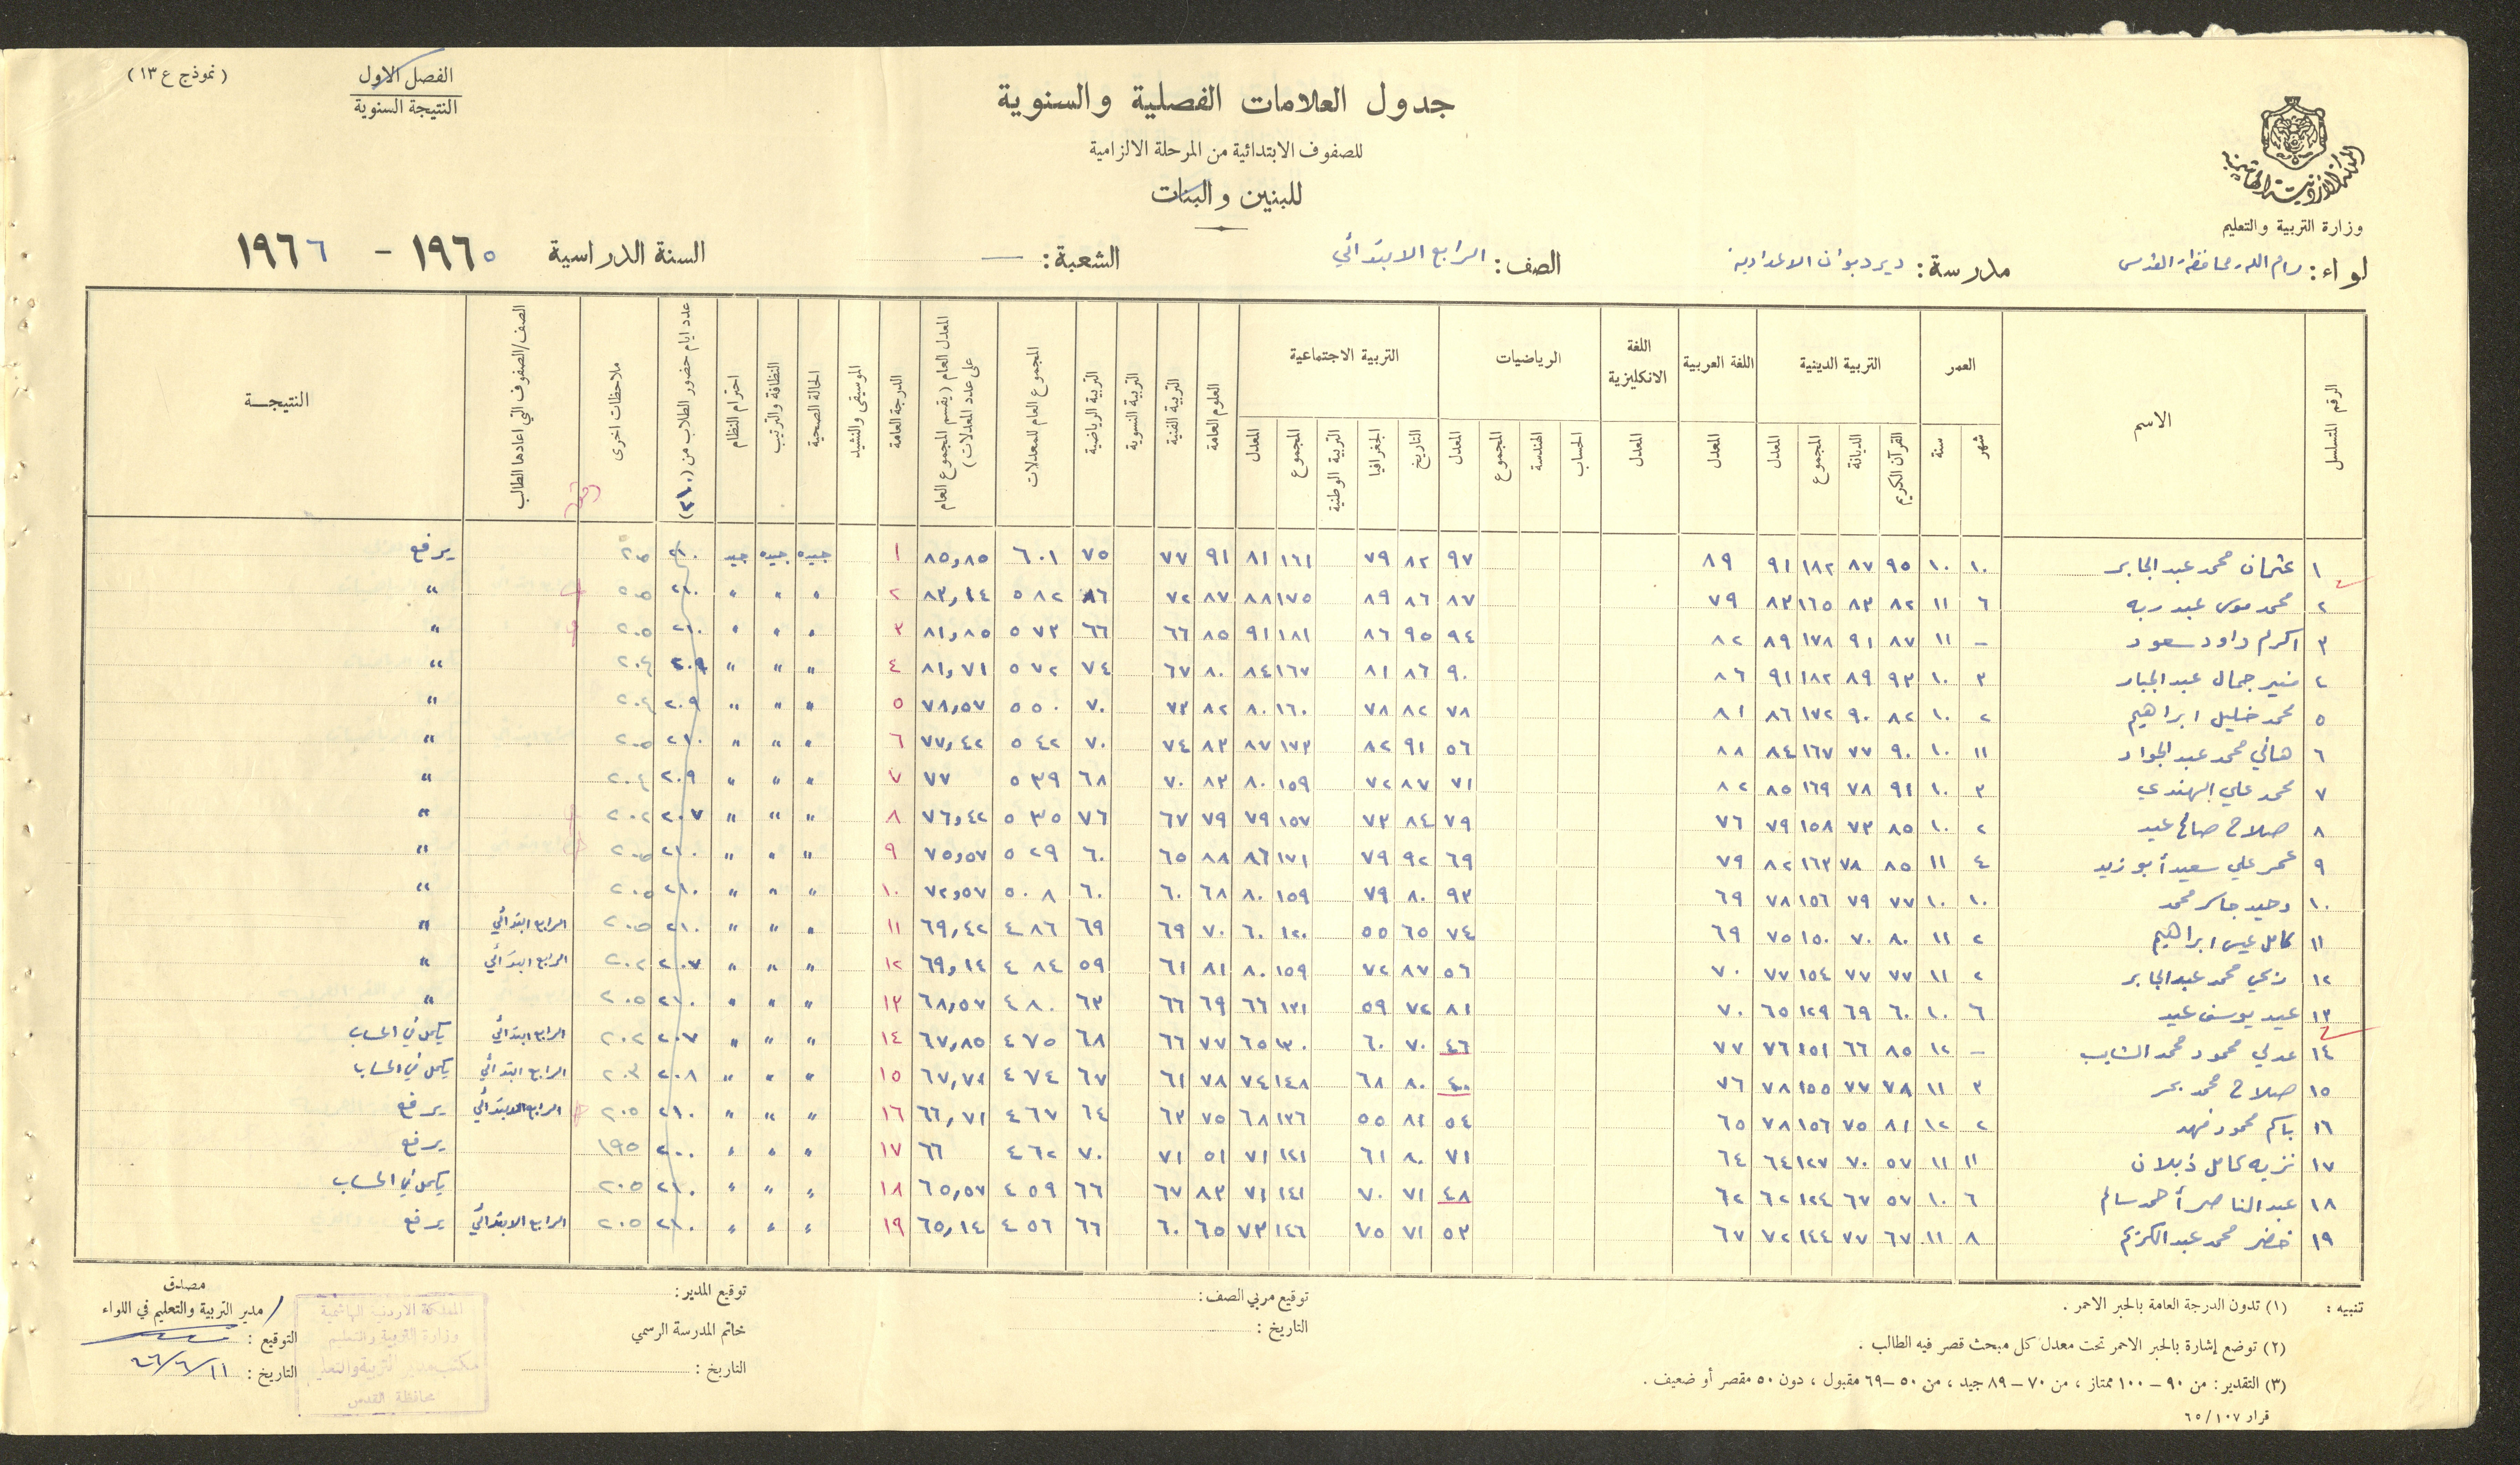 (نموذج ع ١٣)
الفصل الاول
النتيجة السنوية
جدول العلامات الفصلية والسنوية
للصفوف الابتدائية من المرحلة الالزامية
للبنين والبنات
المملكة الاردنية الهاشمية
وزارة التربية والتعليم
لواء: رام الله محافظة القدس مدرسة: ديردبوان الاعدادية الصف: الرابع الابتدائي الشعبة: — السنة الدراسية ١٩٦٥ - ١٩٦٦
الرقم المتسلسل الاسم العمر التربية الدينية اللغة العربية اللغة الانكليزية الرياضيات التربية الاجتماعية العلوم العامة التربية الفنية التربية النسوية التربية الرياضية المجموع العام للمعدلات المعدل العام (يقسم المجموع العام على عدد المعدلات) الدرجة العامة الموسيقى والنشيد الحالة الصحية النظافة والترتيب احترام النظام عدد ايام حضور الطلاب من (٢١٠) ملاحظات اخرى الصف/الصفوف التي اعادها الطالب النتيجــة
شهر سنة القرآن الكريم الديانة المجموع المعدل المعدل المعدل الحساب الهندسة المجموع المعدل التاريخ الجغرافيا التربية الوطنية المجموع المعدل
١ عثمان محمد عبد الجابر ١٠ ١٠ ٩٥ ٨٧ ١٨٢ ٩١ ٨٩ ٩٧ ٨٢ ٧٩ ١٦١ ٨١ ٩١ ٧٧ ٧٥ ٦٠١ ٨٥,٨٥ ١ جيده جيده جيد ٢١٠ ٢٠٥ يرفع
٢ محمد موسى عبد ربه ٦ ١١ ٨٢ ٨٣ ١٦٥ ٨٣ ٧٩ ٨٧ ٨٦ ٨٩ ١٧٥ ٨٨ ٨٧ ٧٢ ٨٦ ٥٨٢ ٨٣,١٤ ٢ " " " ٢١٠ ٢٠٥ "
٣ اكرم داود سعود - ١١ ٨٧ ٩١ ١٧٨ ٨٩ ٨٢ ٩٤ ٩٥ ٨٦ ١٨١ ٩١ ٨٥ ٦٦ ٦٦ ٥٧٣ ٨١,٨٥ ٣ " " " ٢١٠ ٢٠٥ "
٤ منير جمال عبد الجبار ٣ ١٠ ٩٣ ٨٩ ١٨٢ ٩١ ٨٦ ٩٠ ٨٦ ٨١ ١٦٧ ٨٤ ٨٠ ٦٧ ٧٤ ٥٧٢ ٨١,٧١ ٤ " " " ٢٠٩ ٢٠٤ "
٥ محمد خليل ابراهيم ٢ ١٠ ٨٢ ٩٠ ١٧٢ ٨٦ ٨١ ٧٨ ٨٢ ٧٨ ١٦٠ ٨٠ ٨٢ ٧٣ ٧٠ ٥٥٠ ٧٨,٥٧ ٥ " " " ٢٠٩ ٢٠٤ "
٦ هاني محمد عبد الجواد ١١ ١٠ ٩٠ ٧٧ ١٦٧ ٨٤ ٨٨ ٥٦ ٩١ ٨٢ ١٧٣ ٨٧ ٨٣ ٧٤ ٧٠ ٥٤٢ ٧٧,٤٢ ٦ " " " ٢١٠ ٢٠٥ "
٧ محمد علي الهندي ٣ ١٠ ٩١ ٧٨ ١٦٩ ٨٥ ٨٢ ٧١ ٨٧ ٧٢ ١٥٩ ٨٠ ٨٣ ٧٠ ٦٨ ٥٣٩ ٧٧ ٧ " " " ٢٠٩ ٢٠٤ "
٨ صلاح صالح عيد ٢ ١٠ ٨٥ ٧٣ ١٥٨ ٧٩ ٧٦ ٧٩ ٨٤ ٧٣ ١٥٧ ٧٩ ٧٩ ٦٧ ٧٦ ٥٣٥ ٧٦,٤٢ ٨ " " " ٢٠٧ ٢٠٢ "
٩ عمر علي سعيد أبو زيد ٤ ١١ ٨٥ ٧٨ ١٦٣ ٨٢ ٧٩ ٦٩ ٩٢ ٧٩ ١٧١ ٨٦ ٨٨ ٦٥ ٦٠ ٥٢٩ ٧٥,٥٧ ٩ " " " ٢١٠ ٢٠٥ "
١٠ وحيد جاسر محمد ١٠ ١٠ ٧٧ ٧٩ ١٥٦ ٧٨ ٦٩ ٩٣ ٨٠ ٧٩ ١٥٩ ٨٠ ٦٨ ٦٠ ٦٠ ٥٠٨ ٧٢,٥٧ ١٠ " " " ٢١٠ ٢٠٥ "
١١ كامل عيسى ابراهيم ٢ ١١ ٨٠ ٧٠ ١٥٠ ٧٥ ٦٩ ٧٤ ٦٥ ٥٥ ١٢٠ ٦٠ ٧٠ ٦٩ ٦٩ ٤٨٦ ٦٩,٤٢ ١١ " " " ٢١٠ ٢٠٥ الرابع ابتدائي "
١٢ زكي محمد عبد الجابر ٢ ١١ ٧٧ ٧٧ ١٥٤ ٧٧ ٧٠ ٥٦ ٨٧ ٧٢ ١٥٩ ٨٠ ٨١ ٦١ ٥٩ ٤٨٤ ٦٩,١٤ ١٢ " " " ٢٠٧ ٢٠٢ الرابع ابتدائي "
١٣ عيد يوسف عيد ٦ ١٠ ٦٠ ٦٩ ١٢٩ ٦٥ ٧٠ ٨١ ٧٢ ٥٩ ١٣١ ٦٦ ٦٩ ٦٦ ٦٣ ٤٨٠ ٦٨,٥٧ ١٣ " " " ٢١٠ ٢٠٥ "
١٤ عدلي محمود محمد الشايب - ١٢ ٨٥ ٦٦ ١٥١ ٧٦ ٧٧ ٤٦ ٧٠ ٦٠ ١٣٠ ٦٥ ٧٧ ٦٦ ٦٨ ٤٧٥ ٦٧,٨٥ ١٤ " " " ٢٠٧ ٢٠٢ الرابع ابتدائي يكمل في الحساب
١٥ صلاح محمد بحر ٣ ١١ ٧٨ ٧٧ ١٥٥ ٧٨ ٧٦ ٤٠ ٨٠ ٦٨ ١٤٨ ٧٤ ٧٨ ٦١ ٦٧ ٤٧٤ ٦٧,٧١ ١٥ " " " ٢٠٨ ٢٠٣ الرابع ابتدائي يكمل في الحساب
١٦ باكم محمود فهد ٢ ١٢ ٨١ ٧٥ ١٥٦ ٧٨ ٦٥ ٥٤ ٨١ ٥٥ ١٣٦ ٦٨ ٧٥ ٦٣ ٦٤ ٤٦٧ ٦٦,٧١ ١٦ " " " ٢١٠ ٢٠٥ الرابع الابتدائي يرفع
١٧ نزيه كامل ذبلان ١١ ١١ ٥٧ ٧٠ ١٢٧ ٦٤ ٦٤ ٧١ ٨٠ ٦١ ١٤١ ٧١ ٥١ ٧١ ٧٠ ٤٦٢ ٦٦ ١٧ " " " ٢٠٠ ١٩٥ يرفع
١٨ عبد الناصر أحمد سالم ٦ ١٠ ٥٧ ٦٧ ١٢٤ ٦٢ ٦٢ ٤٨ ٧١ ٧٠ ١٤١ ٧١ ٨٣ ٦٧ ٦٦ ٤٥٩ ٦٥,٥٧ ١٨ " " " ٢١٠ ٢٠٥ يكمل في الحساب
١٩ خضر محمد عبد الكريم ٨ ١١ ٦٧ ٧٧ ١٤٤ ٧٢ ٦٧ ٥٣ ٧١ ٧٥ ١٤٦ ٧٣ ٦٥ ٦٠ ٦٦ ٤٥٦ ٦٥,١٤ ١٩ " " " ٢١٠ ٢٠٥ الرابع الابتدائي يرفع
تنبيه : (١) تدون الدرجة العامة بالحبر الاحمر .
(٢) توضع إشارة بالحبر الاحمر تحت معدل كل مبحث قصر فيه الطالب .
(٣) التقدير : من ٩٠ – ١٠٠ ممتاز ، من ٧٠ – ٨٩ جيد ، من ٥٠ – ٦٩ مقبول ، دون ٥٠ مقصر أو ضعيف .
قرار ٦٥/١٠٧
توقيع مربي الصف :
التاريخ :
توقيع المدير :
خاتم المدرسة الرسمي
التاريخ :
المملكة الاردنية الهاشمية
وزارة التربية والتعليم
مكتب مدير التربية والتعليم
محافظة القدس
مصدق
مدير التربية والتعليم في اللواء
التوقيع :
التاريخ : ٦٦/٦/١١